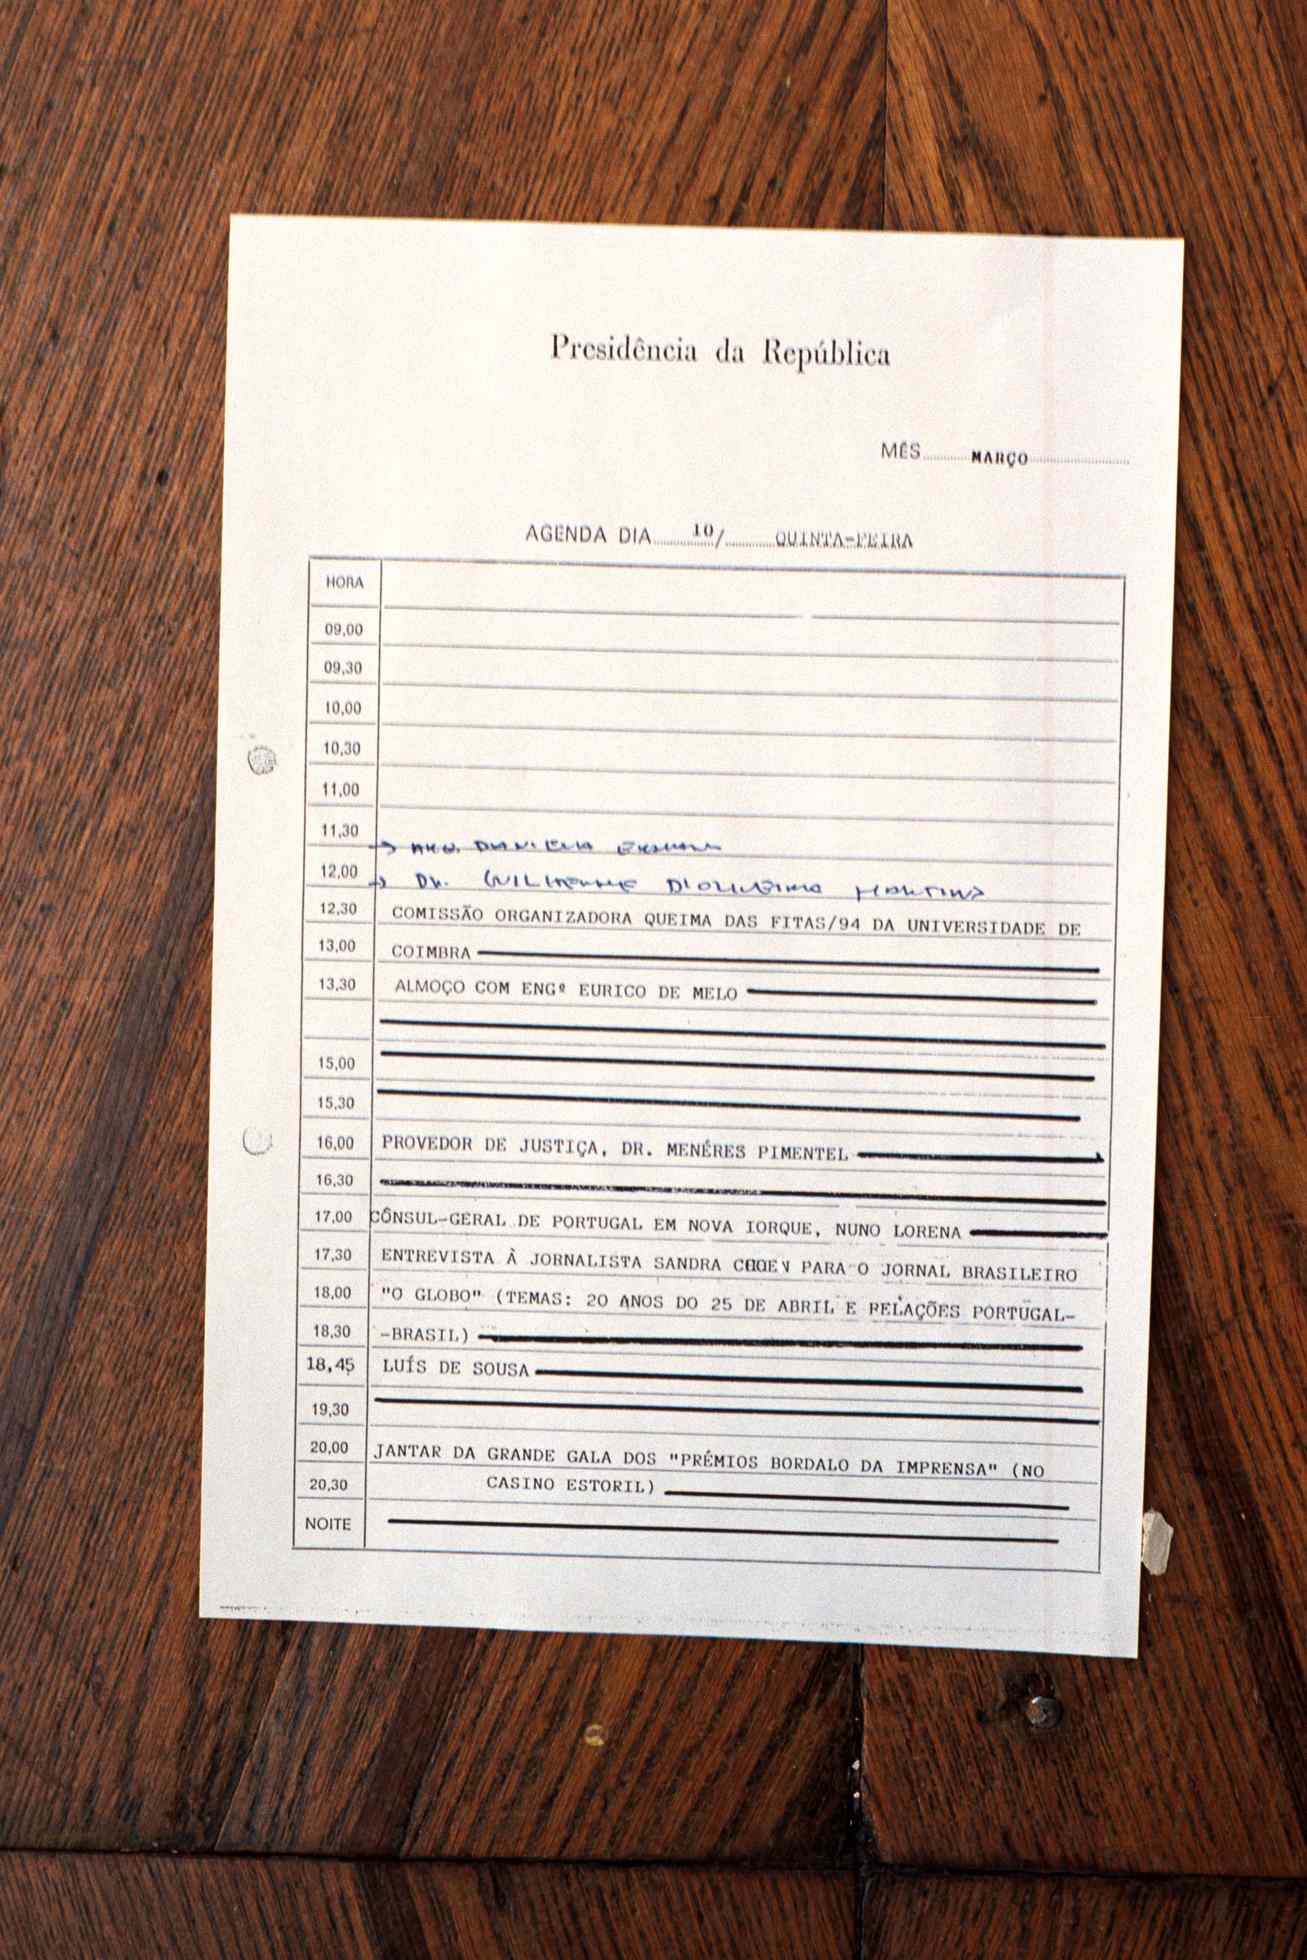 Presidência da República
MÊS MARÇO
AGENDA DIA 10/ QUINTA-FEIRA
HORA
09,00
09,30
10,00
10,30
11,00
11,30 → ARQ. DANIELA
12,00 → DR. GUILHERME D'OLIVEIRA MARTINS
12,30 COMISSÃO ORGANIZADORA QUEIMA DAS FITAS/94 DA UNIVERSIDADE DE
13,00 COIMBRA
13,30 ALMOÇO COM ENGº EURICO DE MELO
15,00
15,30
16,00 PROVEDOR DE JUSTIÇA, DR. MENÉRES PIMENTEL
16,30
17,00 CÔNSUL-GERAL DE PORTUGAL EM NOVA IORQUE, NUNO LORENA
17,30 ENTREVISTA À JORNALISTA SANDRA PARA O JORNAL BRASILEIRO
18,00 "O GLOBO" (TEMAS: 20 ANOS DO 25 DE ABRIL E RELAÇÕES PORTUGAL-
18,30 -BRASIL)
18,45 LUÍS DE SOUSA
19,30
20,00 JANTAR DA GRANDE GALA DOS "PRÉMIOS BORDALO DA IMPRENSA" (NO
20,30 CASINO ESTORIL)
NOITE